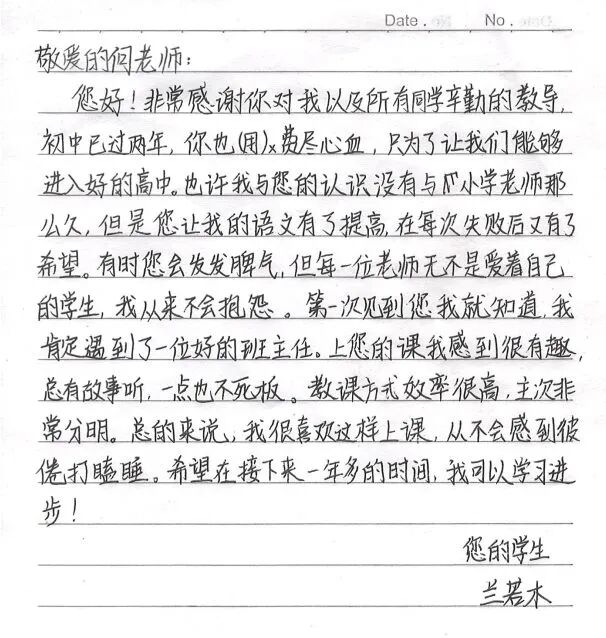 Date . No .
敬爱的何老师：
您好！非常感谢你对我以及所有同学辛勤的教导，
初中已过两年，你也(用)x费尽心血，只为了让我们能够
进入好的高中。也许我与您的认识没有与小学老师那
么久，但是您让我的语文有了提高，在每次失败后又有了
希望。有时您会发发脾气，但每一位老师无不是爱着自己
的学生，我从来不会抱怨。第一次见到您我就知道，我
肯定遇到了一位好的班主任。上您的课我感到很有趣，
总有故事听，一点也不死板。教课方式效率很高，主次非
常分明。总的来说，我很喜欢这样上课，从不会感到疲
倦打瞌睡。希望在接下来一年多的时间，我可以学习进
步！
您的学生
兰若木